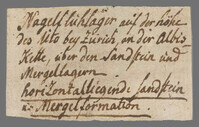 Nagelfluhlager auf der höhe
des Uto bey Zürich, an der Albis
Kette, über den Sandstein und
Mergellagern.
horizontalliegende Sandstein
u: Mergelformation.